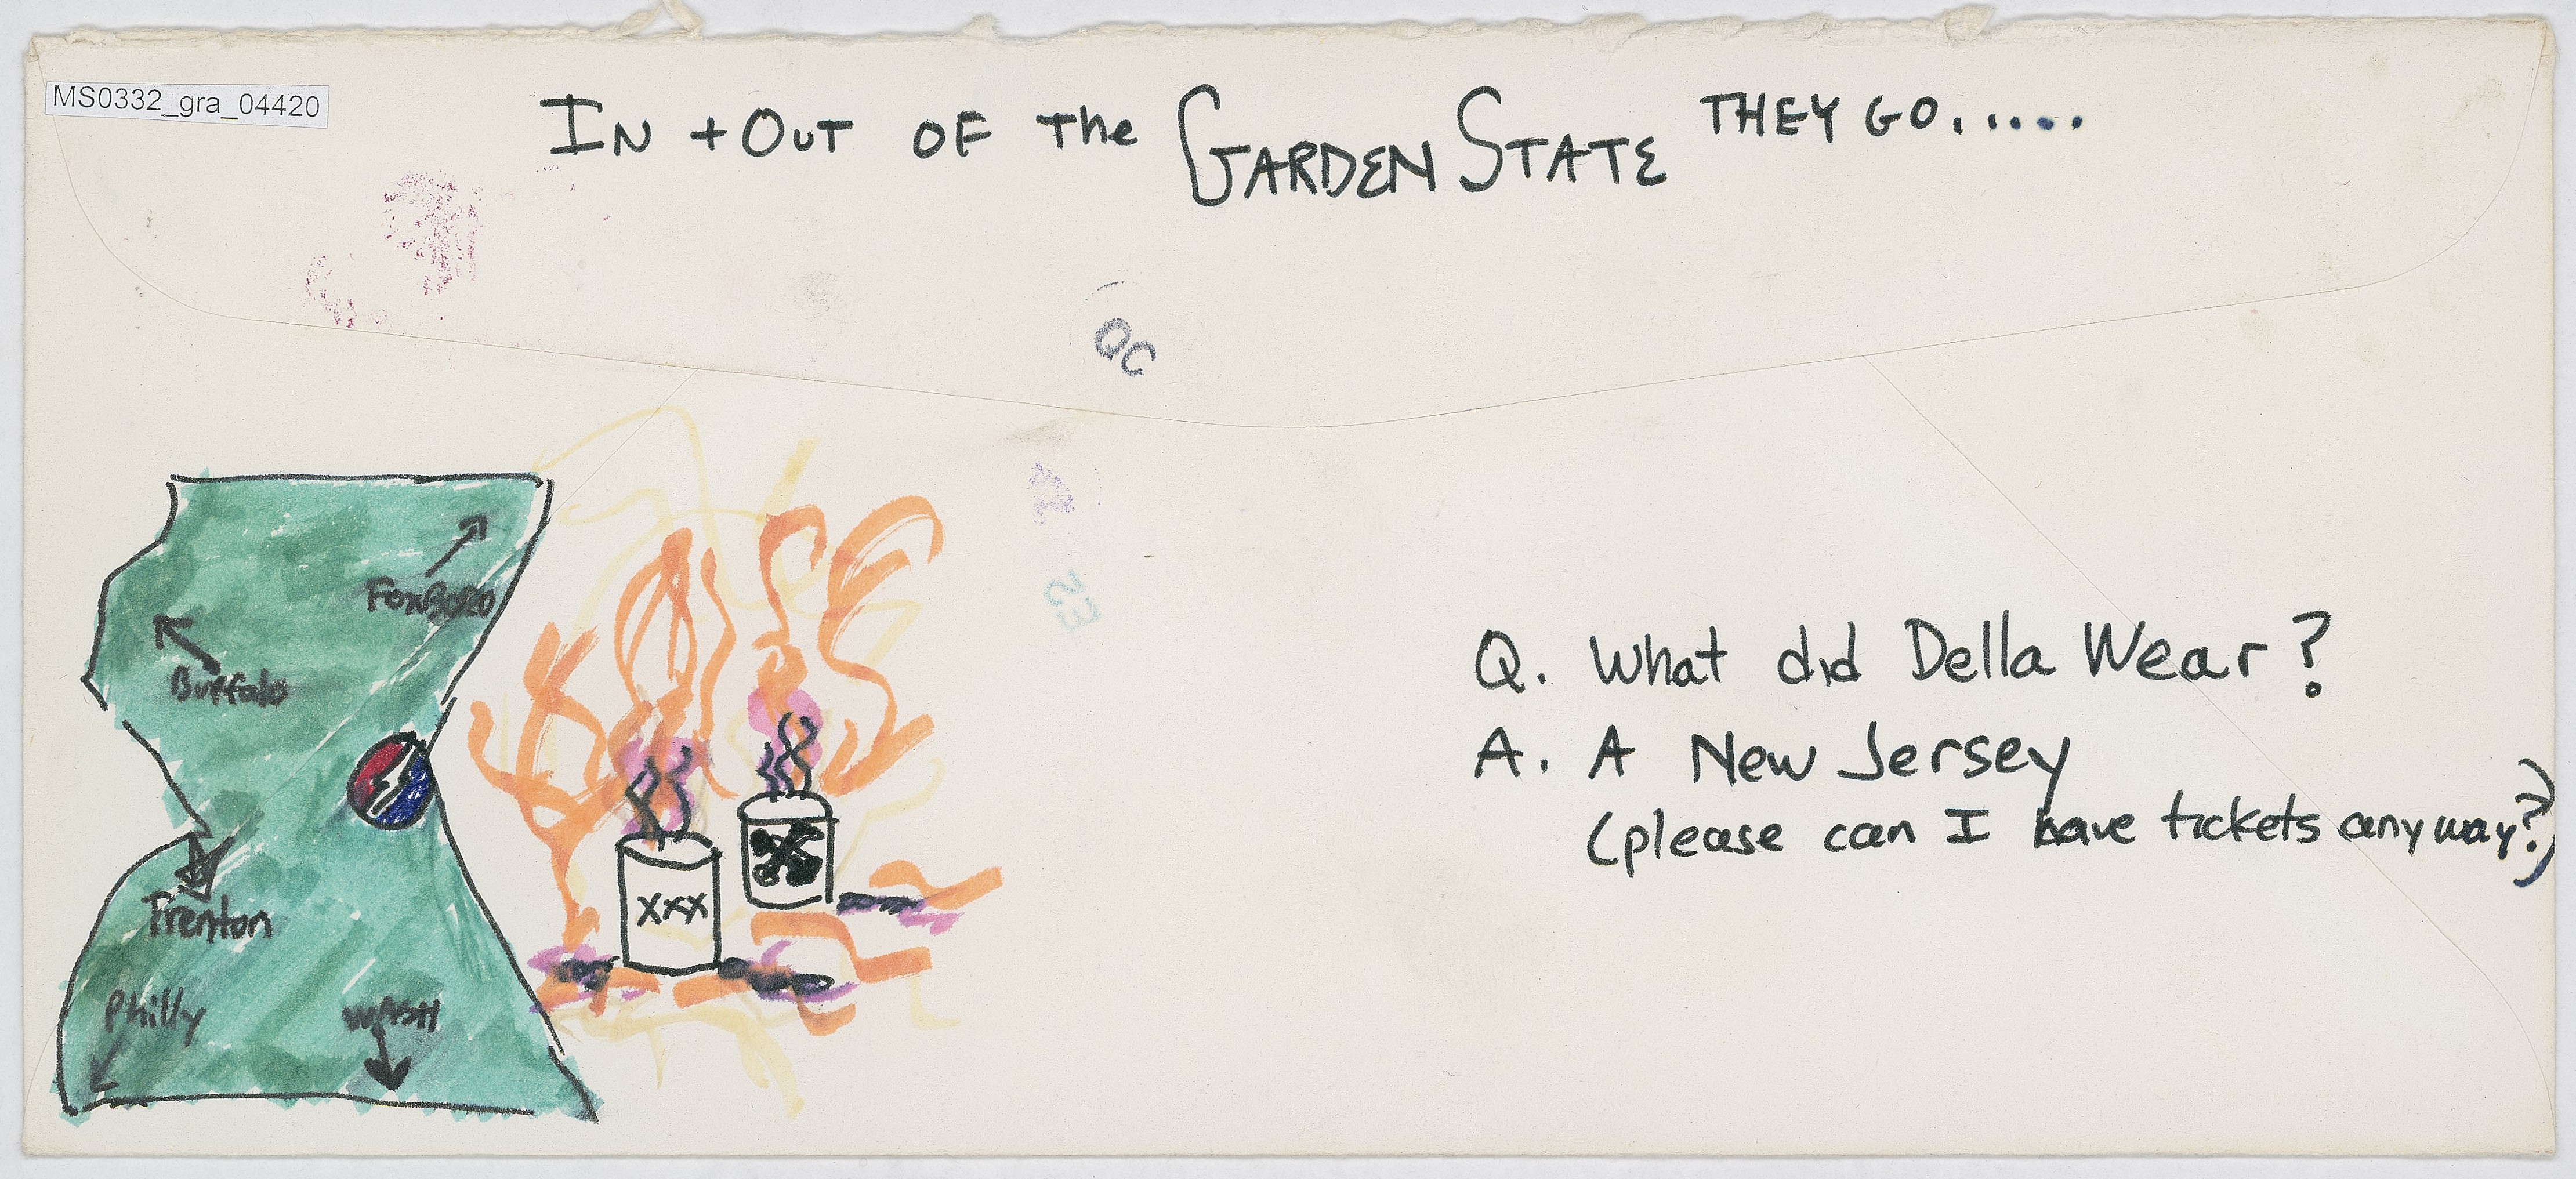 MS0332_gra_04420
IN + OUT OF The GARDEN STATE THEY GO......
OC
FOXBORO
Buffalo
Trenton
Philly
WASH
XXX
Q. What did Della Wear?
A. A New Jersey
(please can I have tickets anyway?)